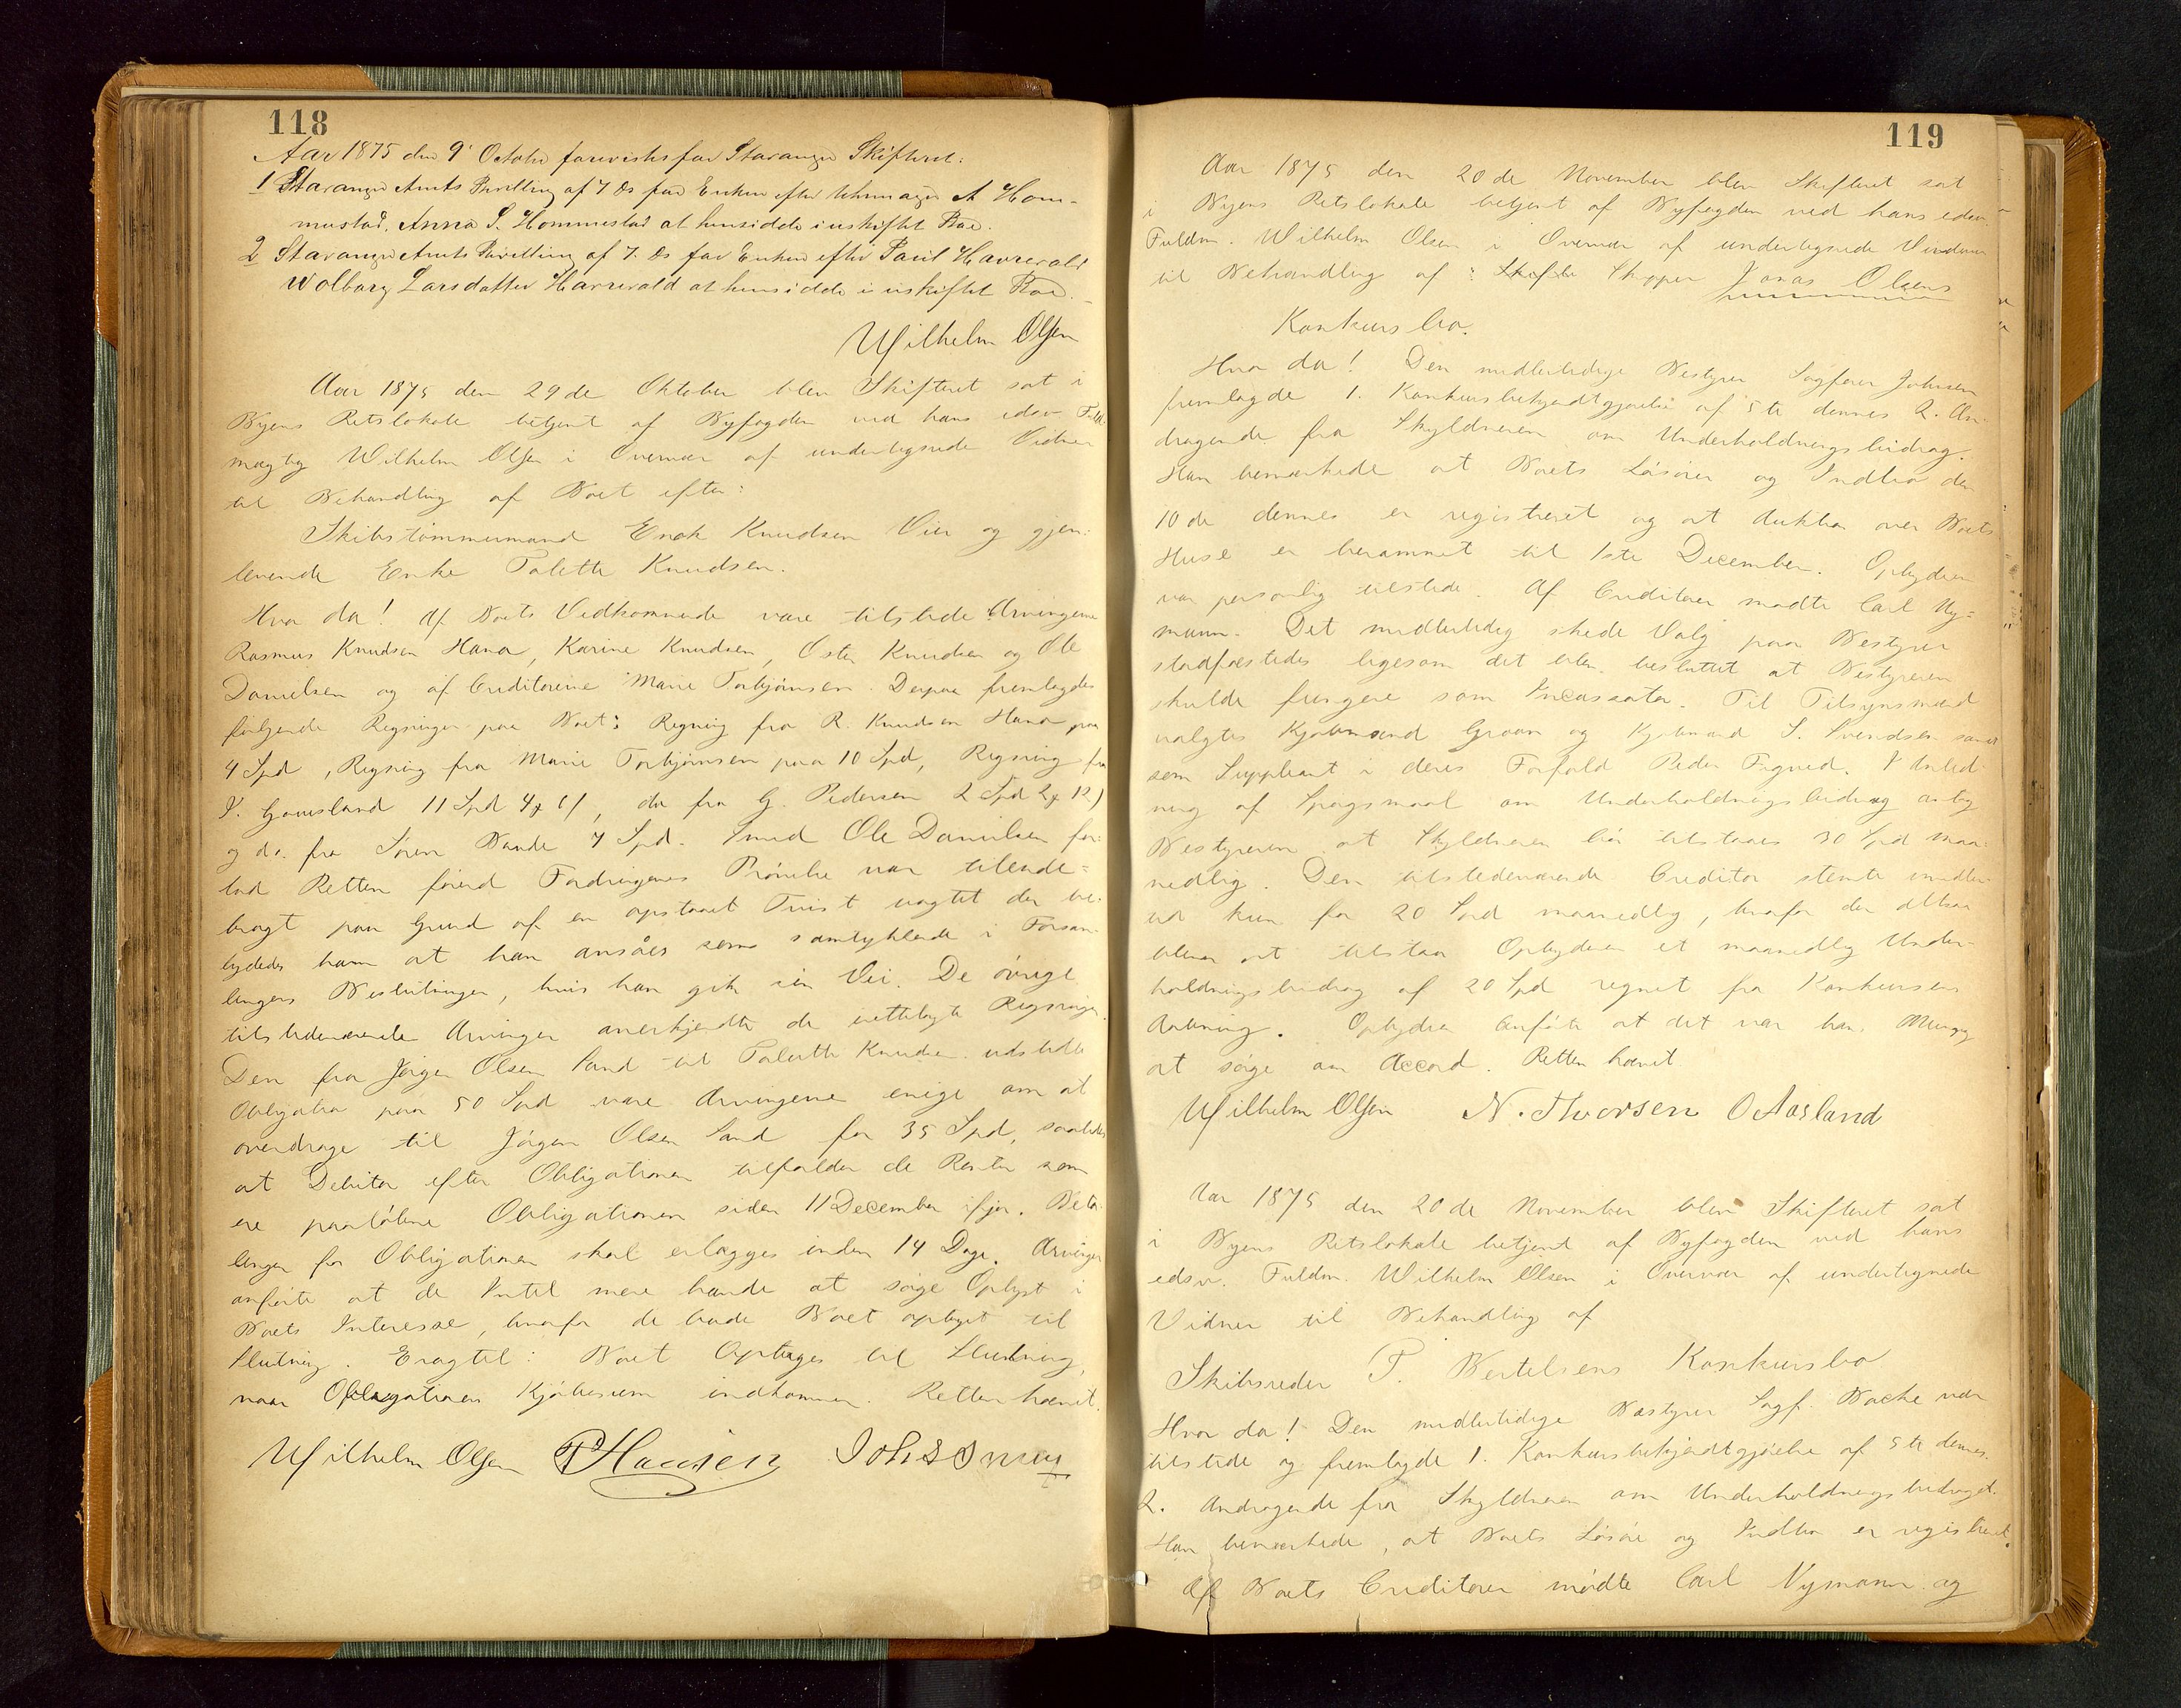 118
Aar 1875 den 9' Octobr forevistes for Stavanger Skifteret:
1 Stavanger Amts Bevilling af 7 ds for Enken efter Uhrmager A Hom-
mestad, Anna S. Hommestad at hensidde i uskiftet Boe.
2 Stavanger Amts Bevilling af 7. ds for Enken efter Paul Haverald
Wolborg Larsdatter Haverald at hensidde i uskiftet Boe.
Wilhelm Olsen
Aar 1875 den 29de Oktober blev Skifteret sat i
Byens Retslokale betjent af Byfogden ved hans edsv. Fuld-
mægtig Wilhelm Olsen i Overvær af undertegnede Vidner
til Behandling af Boet efter:
Skibstømmermand Enok Knudsen Vier og gjen-
levende Enke Talette Knudsen.
Hvor da! Af Boets Vedkommende vare tilstede Arvingerne
Rasmus Knudsen Hana, Karine Knudsen, Osten Knudsen og Ole
Danielsen og af Creditorerne Marie Torbjørnsen. Derpaa fremlagdes
følgende Regninger paa Boet: Regning fra R. Knudsen Hana paa
4 Spd, Regning fra Marie Torbjørnsen paa 10 Spd, Regning fra
11 Spd 4 6, do fra G. Pedersen 2 Spd 2 12
og do. fra Søren Bande 7 Spd. Smed Ole Danielsen for-
lod Retten førend Fordringernes Prøvelse var tilende-
bragt paa Grund af en opstaaet Tvist uagtet der be-
tydedes ham at han ansaaes som samtykkende i Forsam-
lingens Beslutninger, hvis han gik sin Vei. De øvrige
tilstedeværende Arvinger anerkjendte de rettelagte Regninger.
Den fra Jørgen Olsen Sand til Talette Knudsen udstedte
Obligation paa 50 Spd vare Arvingerne enige om at
overdrage til Jørgen Olsen Sand for 35 Spd, saaledes
at Debitor efter Obligationen tilfalder de Renter som
ere paaløbne Obligationen siden 11 December ifjor. Beta-
lingen for Obligationen skal erlægges inden 14 Dage. Arvinger
anførte at de Intet mere havde at søge Oplyst i
Boets Interesse, hvorfor de bade Boet optaget til
Slutning. Eragtet: Boet Optages til Slutning,
naar Obligationens Kjøbesum indkommer. Retten hævet.
Wilhelm Olsen PHansen
119
Aar 1875 den 20de November blev Skifteret sat
i Byens Retslokale betjent af Byfogden ved hans edsv.
Fuldm. Wilhelm Olsen i Overvær af undertegnede Vidner
til Behandling af: Skifte Skipper Jonas Olsens
Konkursbo.
Hvor da! Den midlertidige Bestyrer Sagfører Johnsen
fremlagde 1. Konkursbekjendtgjørelse af 5te dennes 2. An-
dragende fra Skyldneren om Underholdningsbidrag.
Han bemærkede at Boets Løsøre og Indbo den
10de dennes er registreret og at Auktion over Boets
Huse er berammet til 1ste December. Opbyderen
var personlig tilstede. Af Creditorer mødte Carl Ny-
mann. Det midlertidig skede Valg paa Bestyrer
stadfæstedes ligesom det blev besluttet at Bestyreren
skulde fungere som Incassator. Til Tilsynsmænd
valgtes Kjøbmand Graav og Kjøbmand S. Svendsen samt
som Suppleant i deres Forfald Peder Tegned. I Anled-
ning af Spørgsmaal om Underholdningsbidrag antog
Bestyreren at Skyldneren bør tilstaaes 30 Spd maa-
nedlig. Den tilstedeværende Creditor stemte imidler-
tid kun for 20 Spd maanedlig, hvorfor der altsaa
blev at tilstaa Opbyderen et maanedlig Under-
holdningsbidrag af 20 Spd regnet fra Konkursens
Aabning. Opbyderen anførte at det var hans Mening
at søge om Accord. Retten hævet
Wilhelm Olsen N. Thorsen O Aasland
Aar 1875 den 20de November blev Skifteret sat
i Byens Retslokale betjent af Byfogden ved hans
edsv. Fuldm. Wilhelm Olsen i Overvær af undertegnede
Vidner til Behandling af
Skibsreder P. Bertelsens Konkursbo
Hvor da! Den midlertidige Bestyrer Sagf. Backe var
tilstede og fremlagde 1. Konkursbekjendtgjørelse af 5te dennes.
2. Andragende fra Skyldneren om Underholdningsbidraget.
Han bemærkede, at Boets Løsøre og Indbo er registreret.
Af Boets Creditorer mødte Carl Nymann og